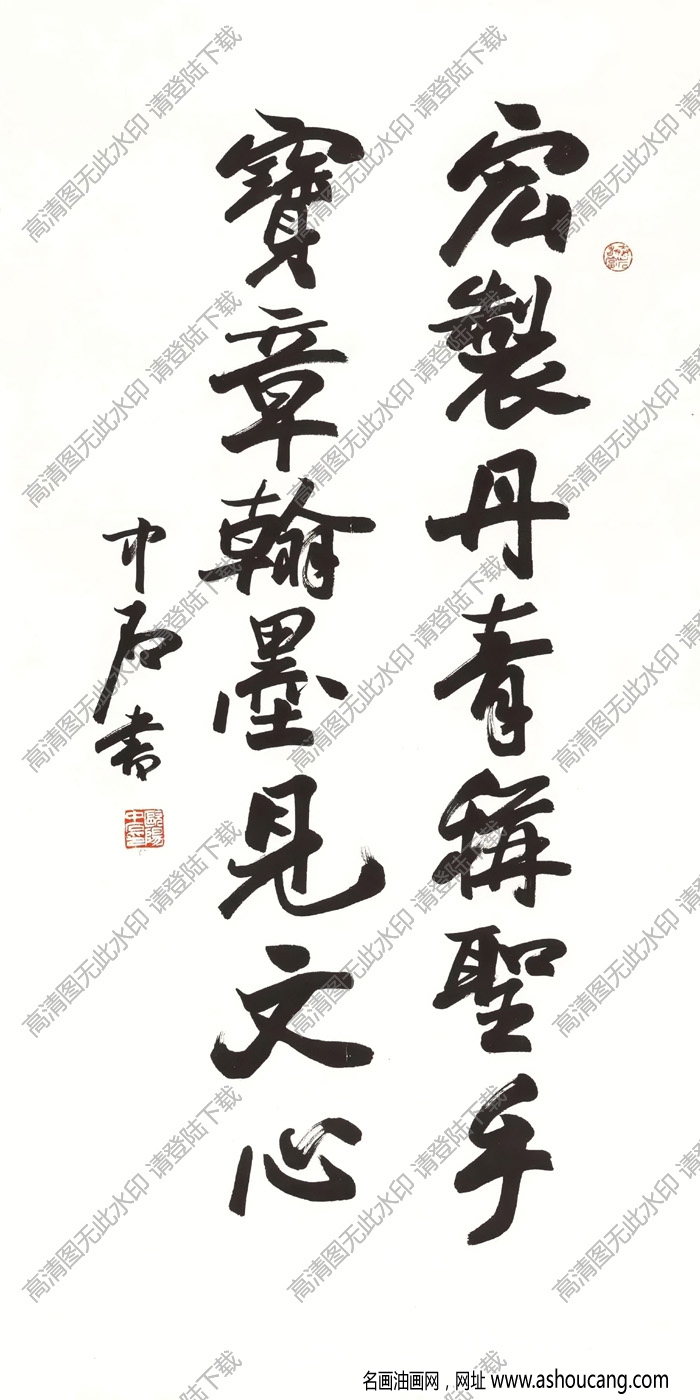 宏製丹青稱聖手
寶章翰墨見文心
中石書
歐陽中石
高清图无此水印 请登陆下载
名画油画网，网址 www.ashoucang.com